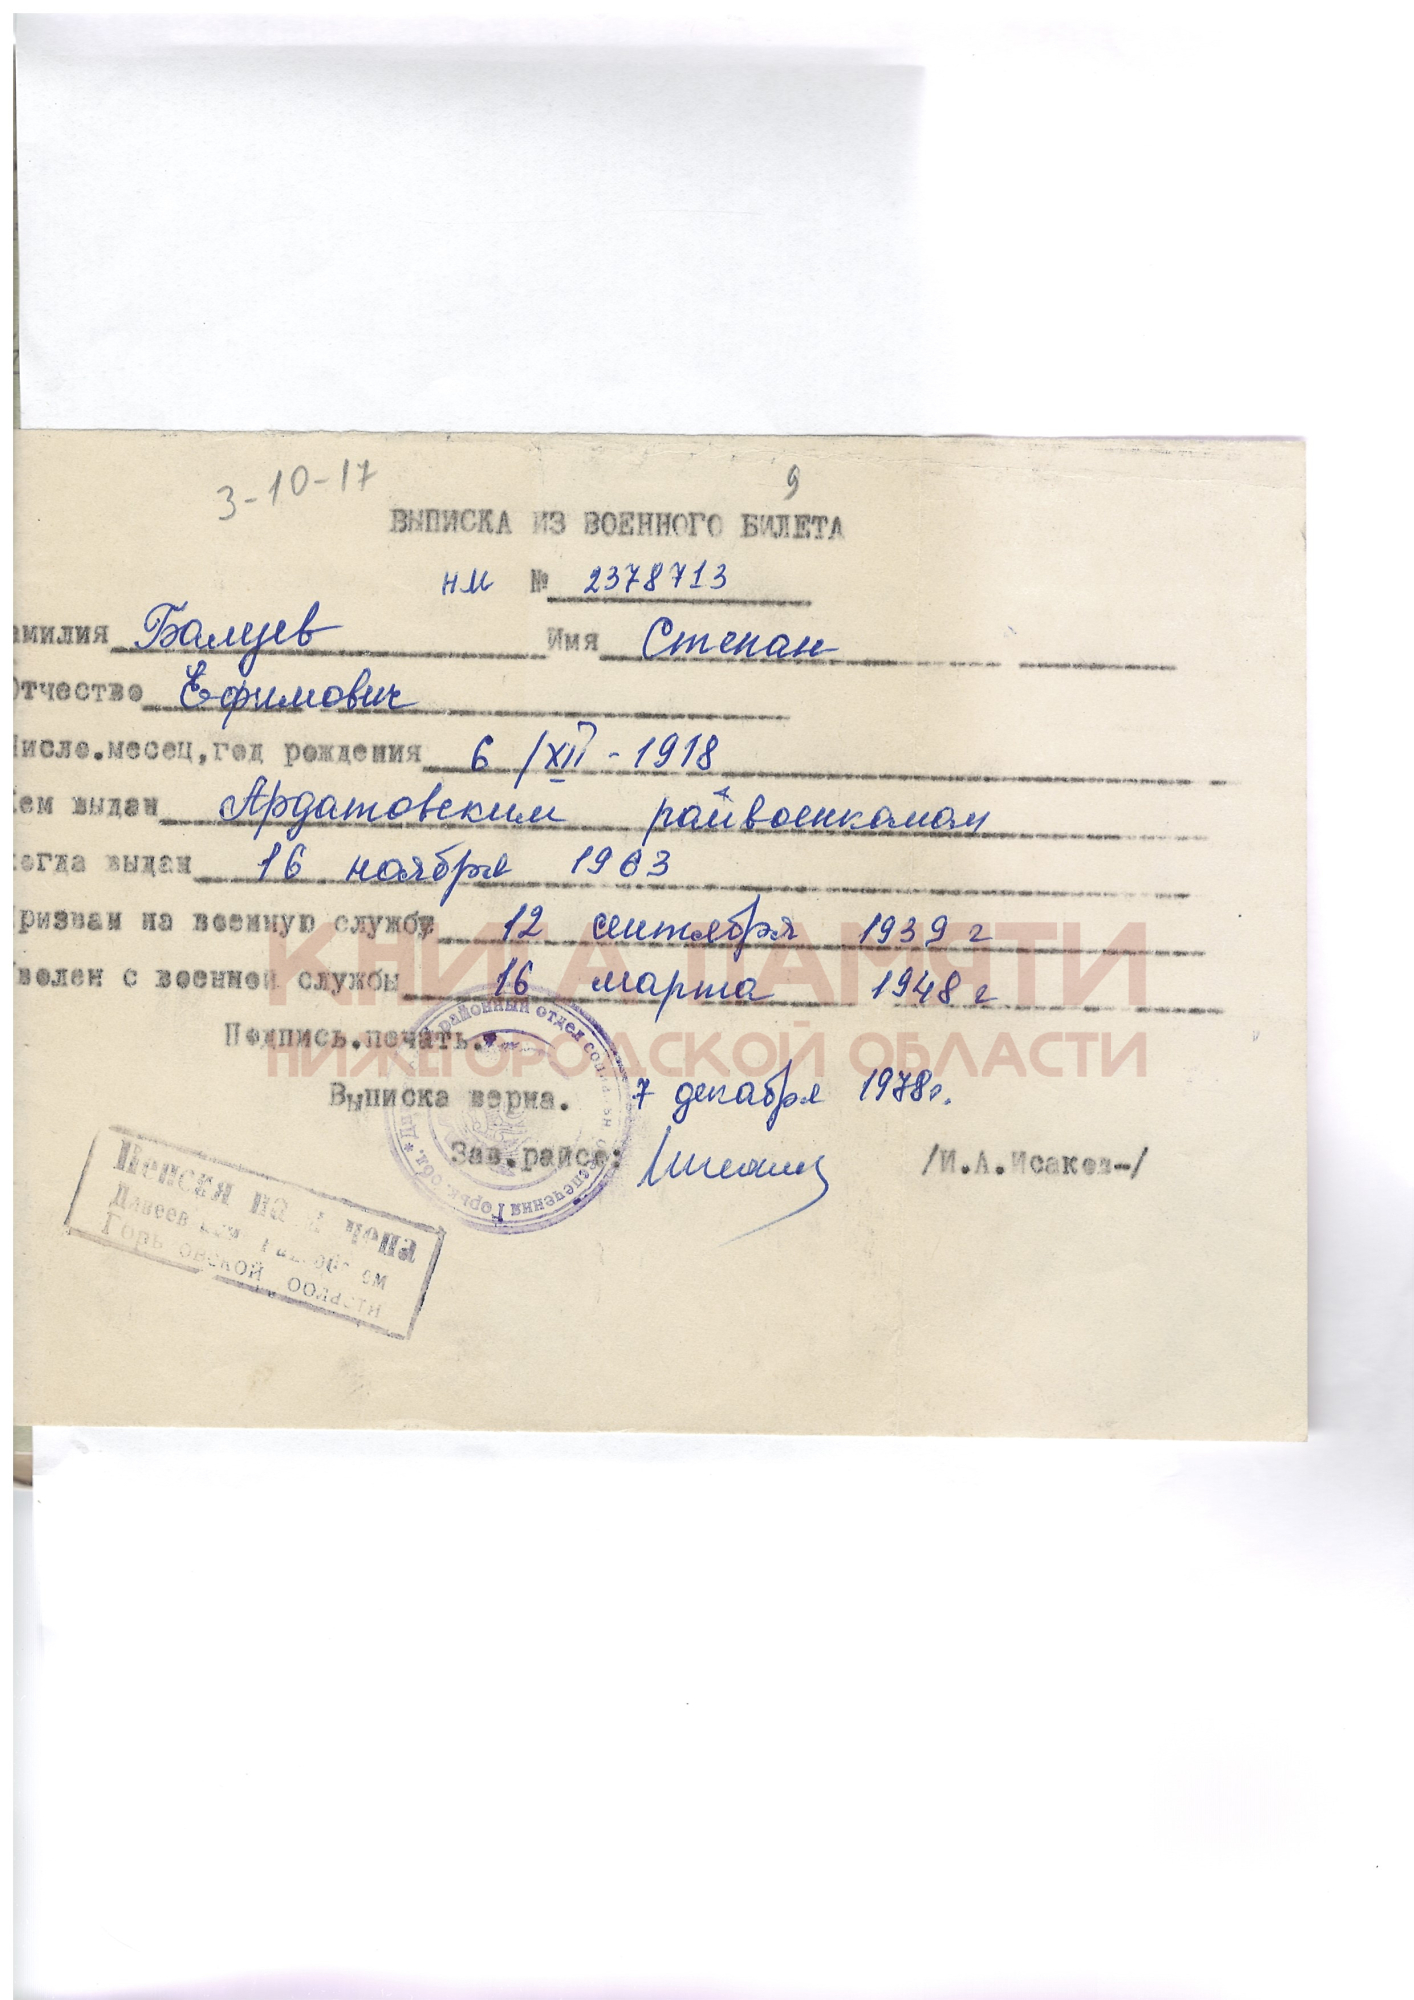 3-10-17
9
ВЫПИСКА ИЗ ВОЕННОГО БИЛЕТА
НМ № 2378713
амилия Балуев Имя Степан
Отчество Ефимович
Число.месец,год рождения 6/XII-1918
Кем выдан Ардатовским райвоенкомом
когда выдан 16 ноября 1963
Призван на военную службу 12 сентября 1939 г
Уволен с военной службы 16 марта 1948 г
КНИГА ПАМЯТИ
НИЖЕГОРОДСКОЙ ОБЛАСТИ
Подпись.печать.
районный отдел
обеспечения Горьк. обл.
Выписка верна. 7 декабря 1978г.
Зав.райсо: /И.А.Исаков-/
Пенсия на
Горьковской области